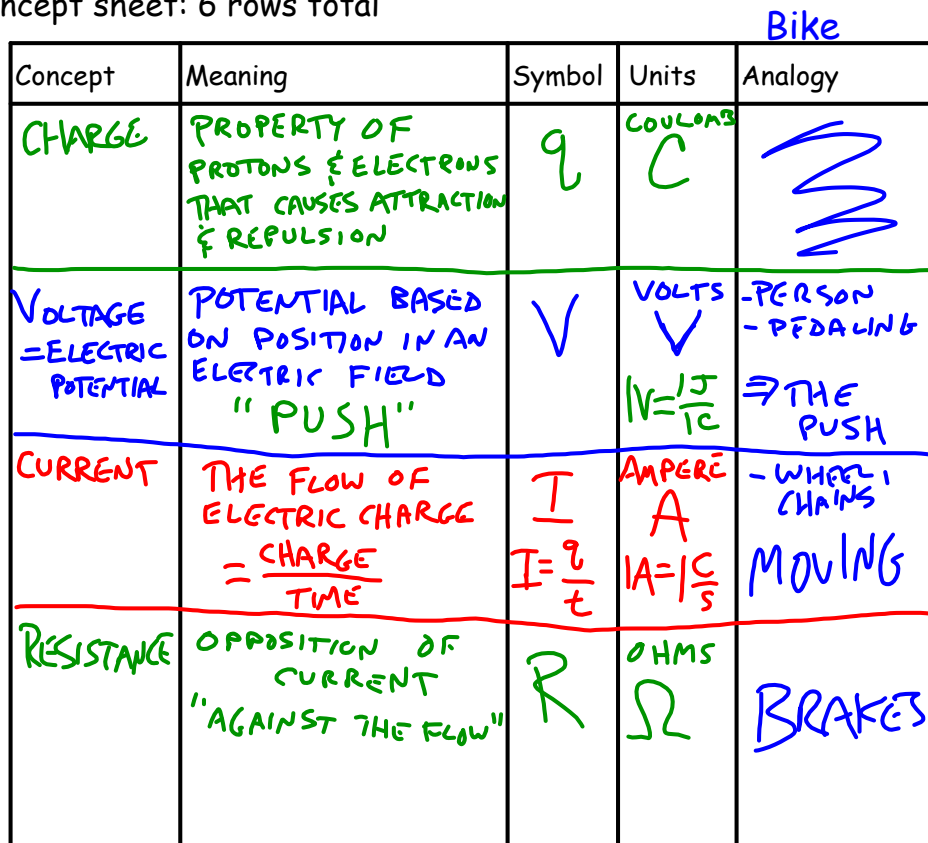 ncept sheet: 6 rows total
Bike
Concept Meaning Symbol Units Analogy
CHARGE
PROPERTY OF
PROTONS & ELECTRONS
THAT CAUSES ATTRACTION
& REPULSION
q
COULOMB
C
VOLTAGE
=ELECTRIC
POTENTIAL
POTENTIAL BASED
ON POSITION IN AN
ELECTRIC FIELD
"PUSH"
V
VOLTS
V
1V=1J/1C
-PERSON
- PEDALING
⇒ THE
PUSH
CURRENT
THE FLOW OF
ELECTRIC CHARGE
= CHARGE
TIME
I
I=q/t
AMPERE
A
1A=1C/s
- WHEEL,
CHAINS
MOVING
RESISTANCE
OPPOSITION OF
CURRENT
"AGAINST THE FLOW"
R
OHMS
Ω
BRAKES